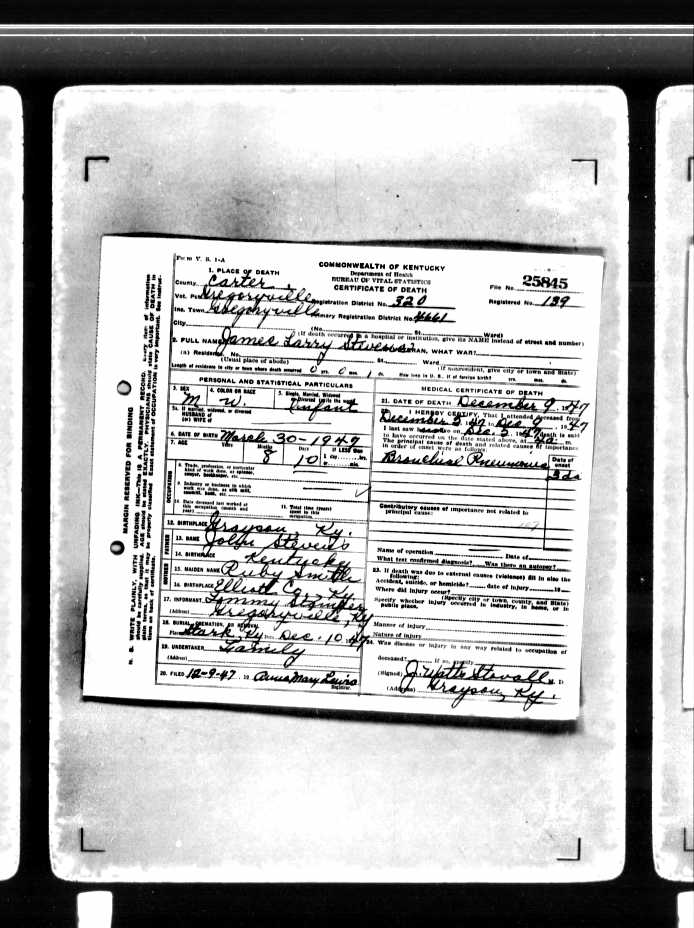 Form V. S. 1-A
COMMONWEALTH OF KENTUCKY
Department of Health
BUREAU OF VITAL STATISTICS
CERTIFICATE OF DEATH
File No. 25845
Registered No. 139
1. PLACE OF DEATH
County Carter
Vot. Pct. Gregoryville Registration District No. 320
Inc. Town Gregoryville Primary Registration District No. 4661
City (No. St. Ward)
(If death occurred in a hospital or institution, give its NAME instead of street and number)
2. FULL NAME James Larry Stevens WHAT WAR?
(a) Residence. No. St., Ward
(Usual place of abode) (If nonresident, give city or town and State)
Length of residence in city or town where death occurred 0 yrs. 0 mos. 1 ds. How long in U. S., if of foreign birth? yrs. mos. ds.
PERSONAL AND STATISTICAL PARTICULARS
3. SEX M
4. COLOR OR RACE W.
5. Single, Married, Widowed Infant
5a. If married, widowed, or divorced
HUSBAND of
(or) WIFE of
6. DATE OF BIRTH March 30-1947
7. AGE Years Months 8 Days 10 If LESS than
OCCUPATION
8. Trade, profession, or particular
kind of work done, as spinner,
sawyer, bookkeeper, etc.
9. Industry or business in which
work was done, as silk mill,
sawmill, bank, etc.
10. Date deceased last worked at
this occupation (month and
year)
11. Total time (years)
spent in this
occupation
12. BIRTHPLACE Grayson, Ky.
FATHER
13. NAME John Stevens
14. BIRTHPLACE Kentucky
MOTHER
15. MAIDEN NAME Ruby Smith
16. BIRTHPLACE Elliott Co., Ky.
17. INFORMANT
(Address) Gregoryville, Ky
18. BURIAL, CREMATION, OR REMOVAL
Place Stark, Ky Dec. 10, 47
19. UNDERTAKER Family
(Address)
20. FILED 12-9-47, 19 Anna Mary Lewis
Registrar.
MEDICAL CERTIFICATE OF DEATH
21. DATE OF DEATH December 9, 47
I HEREBY CERTIFY, That I attended deceased from
December 2, 47, Dec. 9, 1947
I last saw alive on Dec. 8, 47, death is said
to have occurred on the date stated above, at 4 a. m.
The principal cause of death and related causes of importance
in order of onset were as follows:
Date of
onset
Bronchial Pneumonia
Contributory causes of importance not related to
principal cause:
Name of operation Date of
What test confirmed diagnosis? Was there an autopsy?
23. If death was due to external causes (violence) fill in also the
following:
Accident, suicide, or homicide? date of injury 19
Where did injury occur?
(Specify city or town, county, and State)
Specify whether injury occurred in industry, in home, or in
public place.
Manner of injury
Nature of injury
24. Was disease or injury in any way related to occupation of
deceased? If so, specify
(Signed) J. Watts Stovall M. D.
(Address) Grayson, Ky.
MARGIN RESERVED FOR BINDING
N. B. WRITE PLAINLY, WITH UNFADING INK—THIS IS A PERMANENT RECORD. Every item of information
should be carefully supplied. AGE should be stated EXACTLY. PHYSICIANS should state CAUSE OF DEATH in
plain terms, so that it may be properly classified. Exact statement of OCCUPATION is very important. See instruc-
tions on back of certificate.